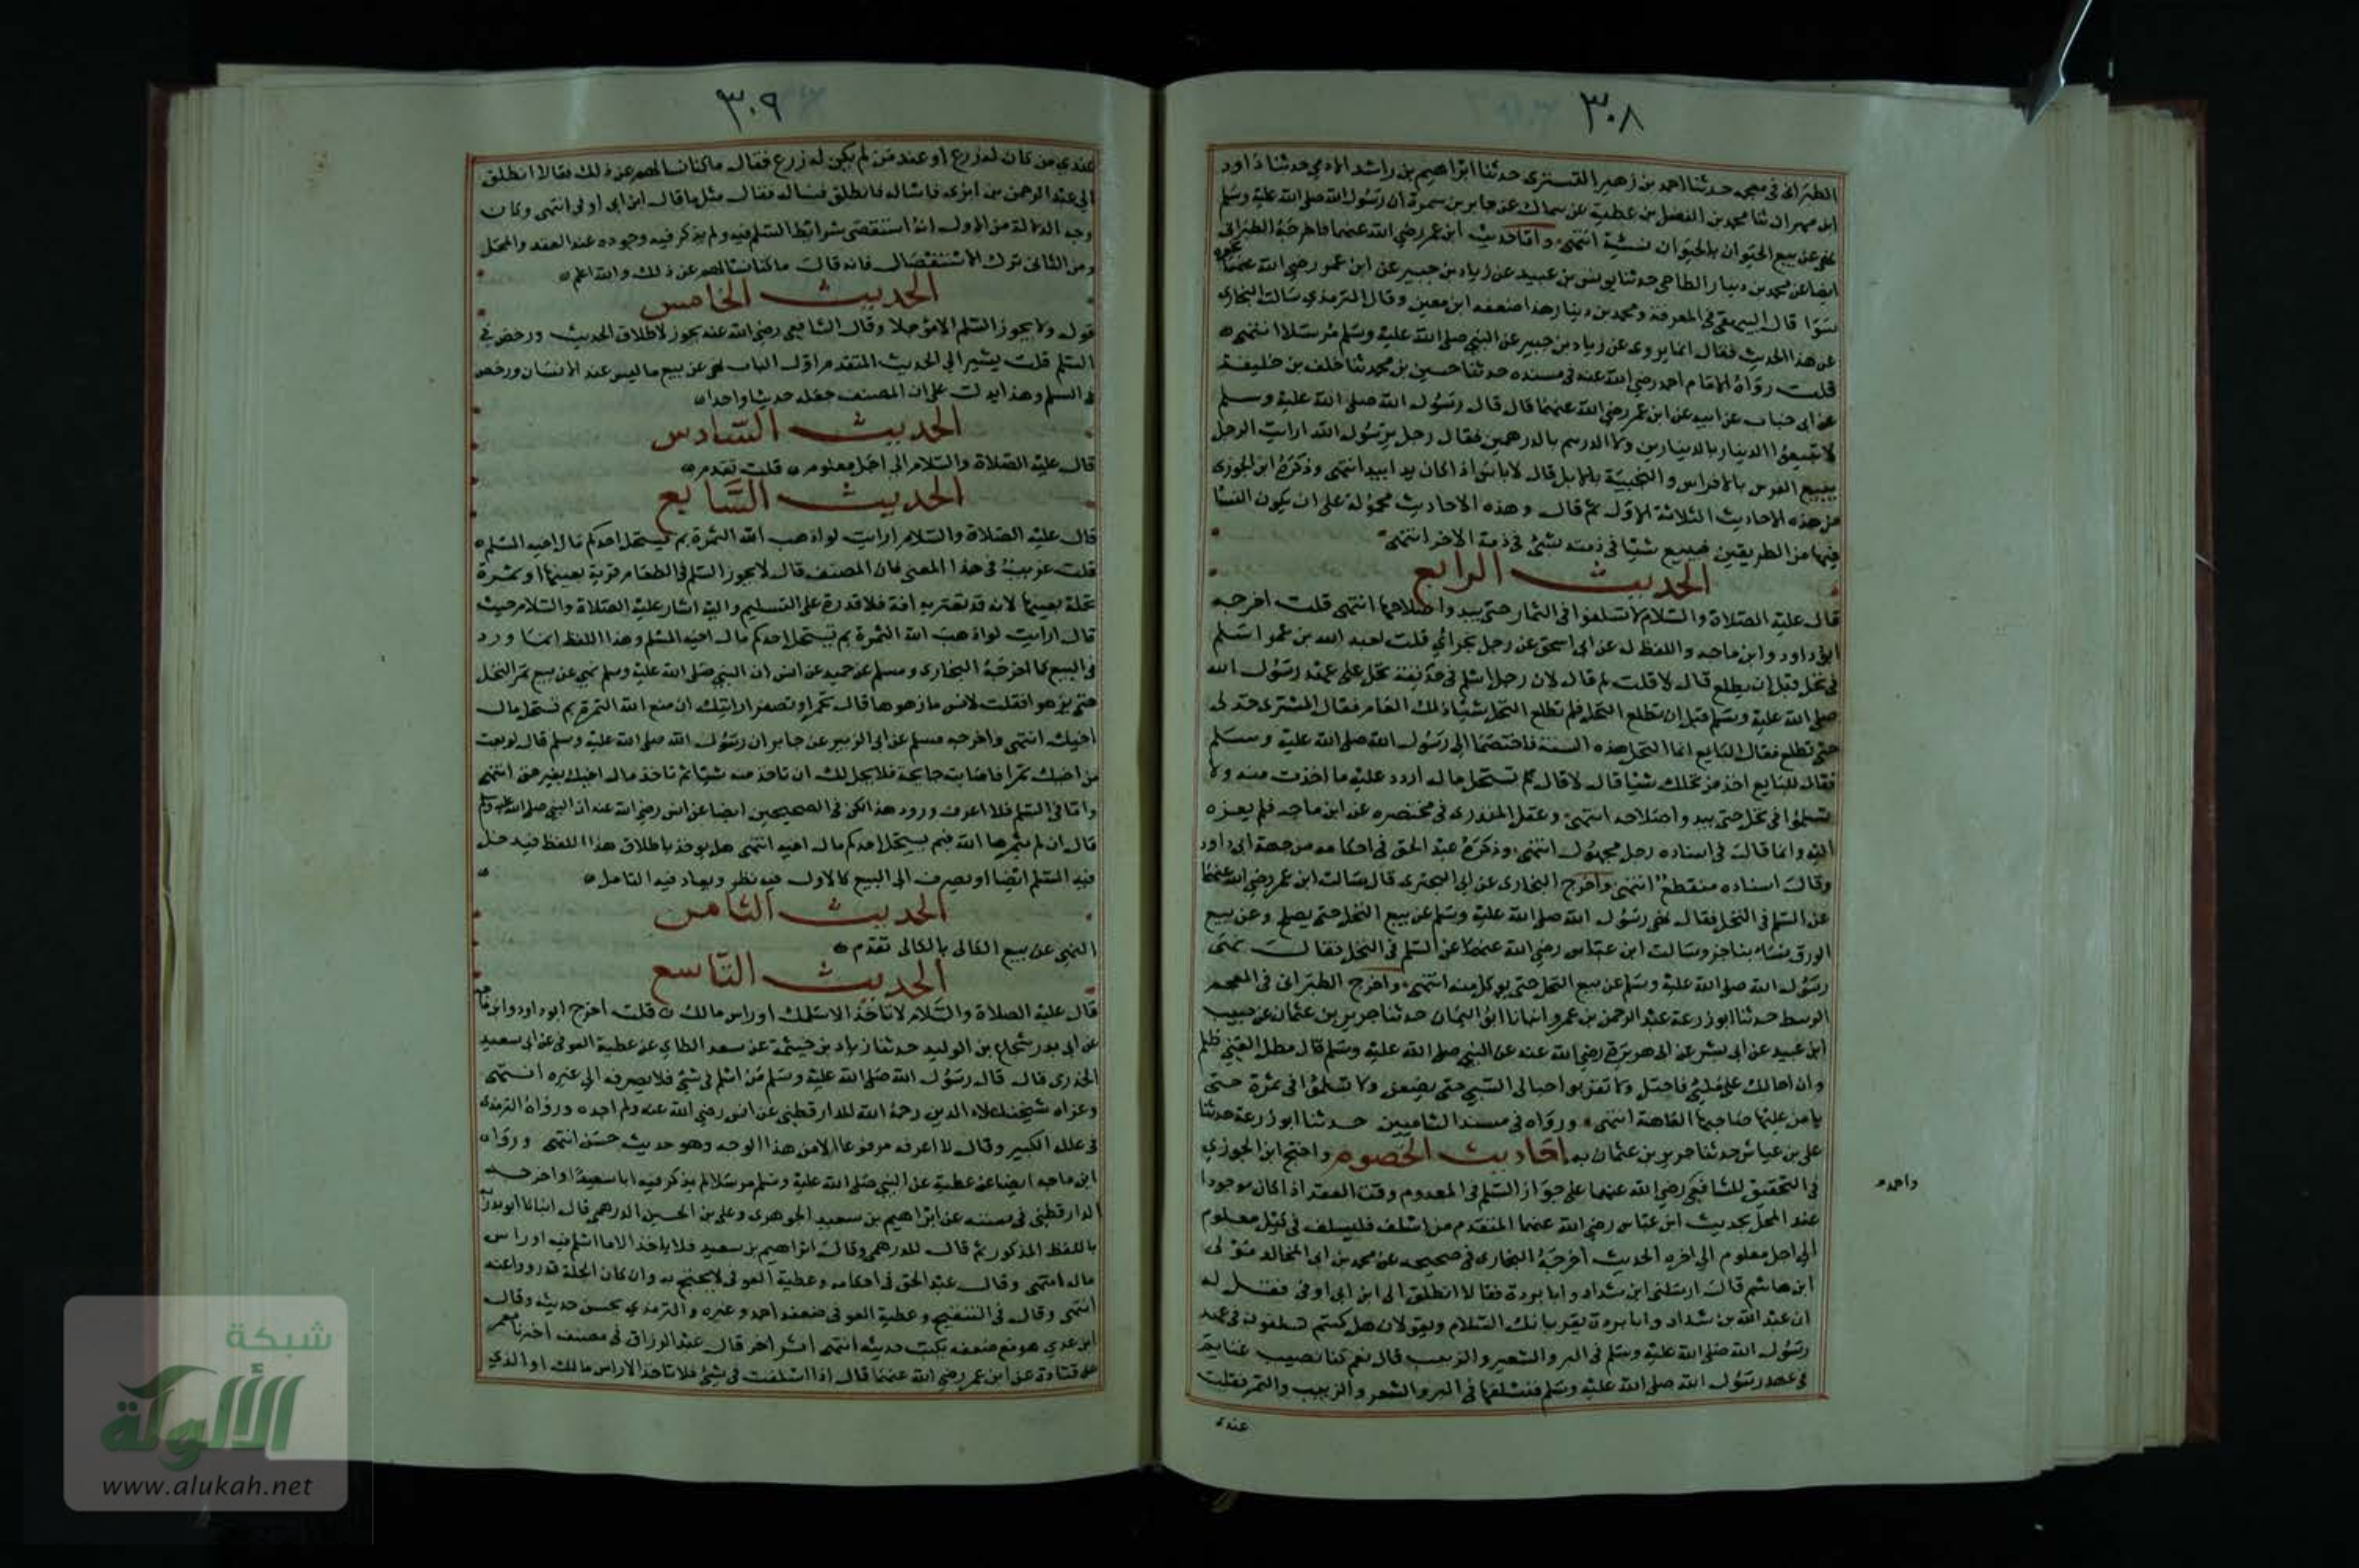 ٣٠٨
الطبراني في معجمه حدثنا احمد بن زهير التستري حدثنا ابراهيم بن راشد الادمي حدثنا داود
ابن مهران ثنا محمد بن الفضل بن عطية عن سماك عن جابر بن سمرة ان رسول الله صلى الله عليه وسلم
نهى عن بيع الحيوان بالحيوان نسية انتهى واما حديث ابن عمر رضي الله عنهما فاخرجه الطبراني
ايضا عن محمد بن دينار الطاحي حدثنا يونس بن عبيد عن زياد بن جبير عن ابن عمر رضي الله عنهما نحوه
سوا قال البيهقي في المعرفة ومحمد بن دينار هذا ضعفه ابن معين وقال الترمذي سالت البخاري
عن هذا الحديث فقال انما يروى عن زياد بن جبير عن النبي صلى الله عليه وسلم مرسلا انتهى
قلت رواه الامام احمد رضي الله عنه في مسنده حدثنا حسين بن محمد ثنا خلف بن خليفة
عن ابي جناب عن ابيه عن ابن عمر رضي الله عنهما قال قال رسول الله صلى الله عليه وسلم
لا تبيعوا الدينار بالدينارين ولا الدرهم بالدرهمين فقال رجل يرسول الله ارايت الرجل
يبيع الفرس بالافراس والنجيبة بالابل قال لا باس اذا كان يدا بيد انتهى وذكره ابن الجوزي
من هذه الاحاديث الثلاثة الاول ثم قال وهذه الاحاديث محمولة على ان يكون النسا
فيهما من الطريقين فيبيع شيا في ذمته بشئ في ذمة الاخر انتهى
الحديث الرابع
قال عليه الصلاة والسلام لا تسلفوا في الثمار حتى يبدوا صلاحها انتهى قلت اخرجه
ابو داود وابن ماجه واللفظ له عن ابي اسحق عن رجل نجراني قلت لعبد الله بن عمر اسلم
في نخل قبل ان يطلع قال لا قلت لم قال لان رجلا اسلم في حديقة نخل على عهد رسول الله
صلى الله عليه وسلم قبل ان تطلع النخل فلم تطلع النخل شيا ذلك العام فقال المشتري هو لي
حتى تطلع فقال البايع انما النخل هذه السنة فاختصما الى رسول الله صلى الله عليه وسلم
فقال للبايع اخذ من نخلك شيا قال لا قال بم تستحل ماله اردد عليه ما اخذت منه ولا
تسلموا في نخل حتى يبدوا صلاحه انتهى وغفل المنذري في مختصره عن ابن ماجه فلم يعزه
اليه وانما قال في اسناده رجل مجهول انتهى وذكره عبد الحق في احكامه من جهة ابي داود
وقال اسناده منقطع انتهى واخرج البخاري عن ابي البختري قال سالت ابن عمر رضي الله عنهما
عن السلم في النخل فقال نهى رسول الله صلى الله عليه وسلم عن بيع النخل حتى يصلح وعن بيع
الورق نساء بناجز وسالت ابن عباس رضي الله عنهما عن السلم في النخل فقال نهى
رسول الله صلى الله عليه وسلم عن بيع النخل حتى يوكل منه انتهى واخرج الطبراني في المعجم
الوسط حدثنا ابو زرعة عبد الرحمن بن عمرو انبانا ابو اليمان حدثنا حريز بن عثمان عن حبيب
ابن عبيد عن ابي بشر عن ابي هريرة رضي الله عنه عن النبي صلى الله عليه وسلم قال مطل الغني ظلم
وان احالك على ملئ فاحتل ولا تقربوا حبالى السبي حتى يضعن ولا تسلموا في ثمرة حتى
يامن عليها صاحبها العاهة انتهى ورواه في مسند الشاميين حدثنا ابو زرعة حدثنا
علي بن عياش حدثنا حريز بن عثمان به احاديث الخصوم واحتج ابن الجوزي
في التحقيق للشافعي رضي الله عنهما على جواز السلم في المعدوم وقت العقد اذا كان موجودا
واحمد
عند المحل بحديث ابن عباس رضي الله عنهما المتقدم من اسلف فليسلف في كيل معلوم
الى اجل معلوم الى اخره الحديث اخرجه البخاري في صحيحه عن محمد بن ابي المجالد مولى
ابن هاشم قال ارسلني ابن شداد وابا بردة فقالا انطلق الى ابن ابي اوفى فقل له
ان عبد الله بن شداد وابا بردة يقريانك السلام ويقولان هل كنتم تسلفون في عهد
رسول الله صلى الله عليه وسلم في البر والشعير والزبيب قال نعم كنا نصيب غنايم
في عهد رسول الله صلى الله عليه وسلم فنسلفها في البر والشعير والزبيب والتمر فقلت
عندي
٣٠٩
عندي من كان له زرع او عند من لم يكن له زرع فقال ما كنا نسالهم عن ذلك فقالا انطلق
الى عبد الرحمن بن ابزى فاساله فانطلق فساله فقال مثل ما قال ابن ابي اوفى انتهى وكان
وجه الدلالة من الاول انه استقصى شرائط السلم فيه ولم يذكر فيه وجوده عند العقد والمحل
ومن الثاني ترك الاستفصال فانه قال ما كنا نسالهم عن ذلك والله اعلم
الحديث الخامس
قوله ولا يجوز السلم الا مؤجلا وقال الشافعي رضي الله عنه يجوز لاطلاق الحديث ورخص في
السلم قلت يشير الى الحديث المتقدم اول الباب نهى عن بيع ما ليس عند الانسان ورخص
في السلم وهذا يدل على ان المصنف جعله حديثا واحدا
الحديث السادس
قال عليه الصلاة والسلام الى اجل معلوم قلت تقدم
الحديث السابع
قال عليه الصلاة والسلام ارايت لو اذهب الله الثمرة بم يستحل احدكم مال اخيه المسلم
قلت غريب في هذا المعنى فان المصنف قال لا يجوز السلم في الطعام قرية بعينها او ثمرة
نخلة بعينها لانه قد تعتريه افة فلا قدرة على التسليم واليه اشار عليه الصلاة والسلام حيث
قال ارايت لو اذهب الله الثمرة بم يستحل احدكم مال اخيه المسلم وهذا اللفظ انما ورد
في البيع كما اخرجه البخاري ومسلم عن حميد عن انس ان النبي صلى الله عليه وسلم نهى عن بيع ثمر النخل
حتى يزهو افقلت لانس ما زهوها قال تحمر او تصفر ارايتك ان منع الله الثمرة بم تستحل مال
اخيك انتهى واخرجه مسلم عن ابي الزبير عن جابر ان رسول الله صلى الله عليه وسلم قال لو بعت
من اخيك ثمرا فاصابته جايحة فلا يحل لك ان تاخذ منه شيا ثم تاخذ مال اخيك بغير حق انتهى
واما في السلم فلا اعرف ورود هذا لكن في الصحيحين ايضا عن انس رضي الله عنه ان النبي صلى الله عليه وسلم
قال ان لم يثمرها الله فبم يستحل احدكم مال اخيه انتهى هل يوخذ باطلاق هذا اللفظ فيدخل
فيه السلم ايضا او يصرف الى البيع كالاول فيه نظر ويعاد فيه التامل
الحديث الثامن
النهي عن بيع الكالى بالكالى تقدم
الحديث التاسع
قال عليه الصلاة والسلام لا تاخذ الا سلمك او راس مالك قلت اخرج ابو داود وابن ماجه
عن ابي بدر شجاع بن الوليد حدثنا زياد بن خيثمة عن سعد الطاي عن عطية العوفي عن ابي سعيد
الخدري قال قال رسول الله صلى الله عليه وسلم من اسلم في شئ فلا يصرفه الى غيره انتهى
وعزاه شيخنا علاء الدين رحمه الله للدارقطني عن انس رضي الله عنه ولم اجده ورواه الترمذي
في علله الكبير وقال لا اعرفه مرفوعا الا من هذا الوجه وهو حديث حسن انتهى ورواه
ابن ماجه ايضا عن عطية عن النبي صلى الله عليه وسلم مرسلا لم يذكر فيه ابا سعيد واخرجه
الدارقطني في سننه عن ابراهيم بن سعيد الجوهري وعلي بن الحسين الدرهمي قال انبانا ابو بدر
باللفظ المذكور ثم قال للدرهمي وقال ابراهيم بن سعيد فلا ياخذ الا ما اسلم فيه او راس
ماله انتهى وقال عبد الحق في احكامه وعطية العوفي لا يحتج به وان كان الجلة قد رووا عنه
انتهى وقال في التنقيح وعطية العوفي ضعفه احمد وغيره والترمذي يحسن حديثه وقال
ابن عدي هو مع ضعفه يكتب حديثه انتهى اثر اخر قال عبد الرزاق في مصنفه اخبرنا معمر
عن قتادة عن ابن عمر رضي الله عنهما قال اذا اسلفت في شئ فلا تاخذ الا راس مالك او الذي
شبكة
الألوكة
www.alukah.net